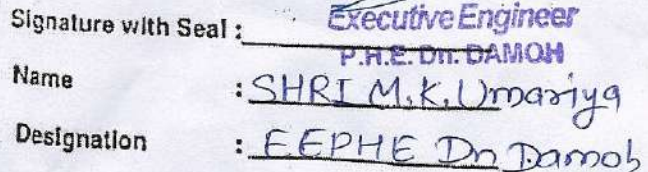 Signature with Seal : Executive Engineer
P.H.E. Dn. DAMOH
Name : SHRI M.K. Umariya
Designation : EEPHE Dn Damoh